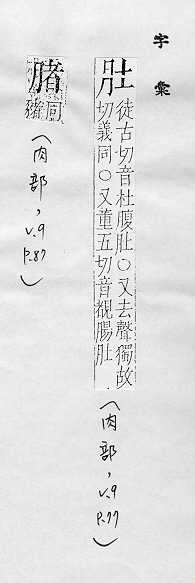 字彙
肚 徒古切音杜腹肚○又去聲獨故
切義同○又董五切音覩腸肚
(肉部, v.9 P.77)
䐗 同豬
(肉部, v.9 P.87)